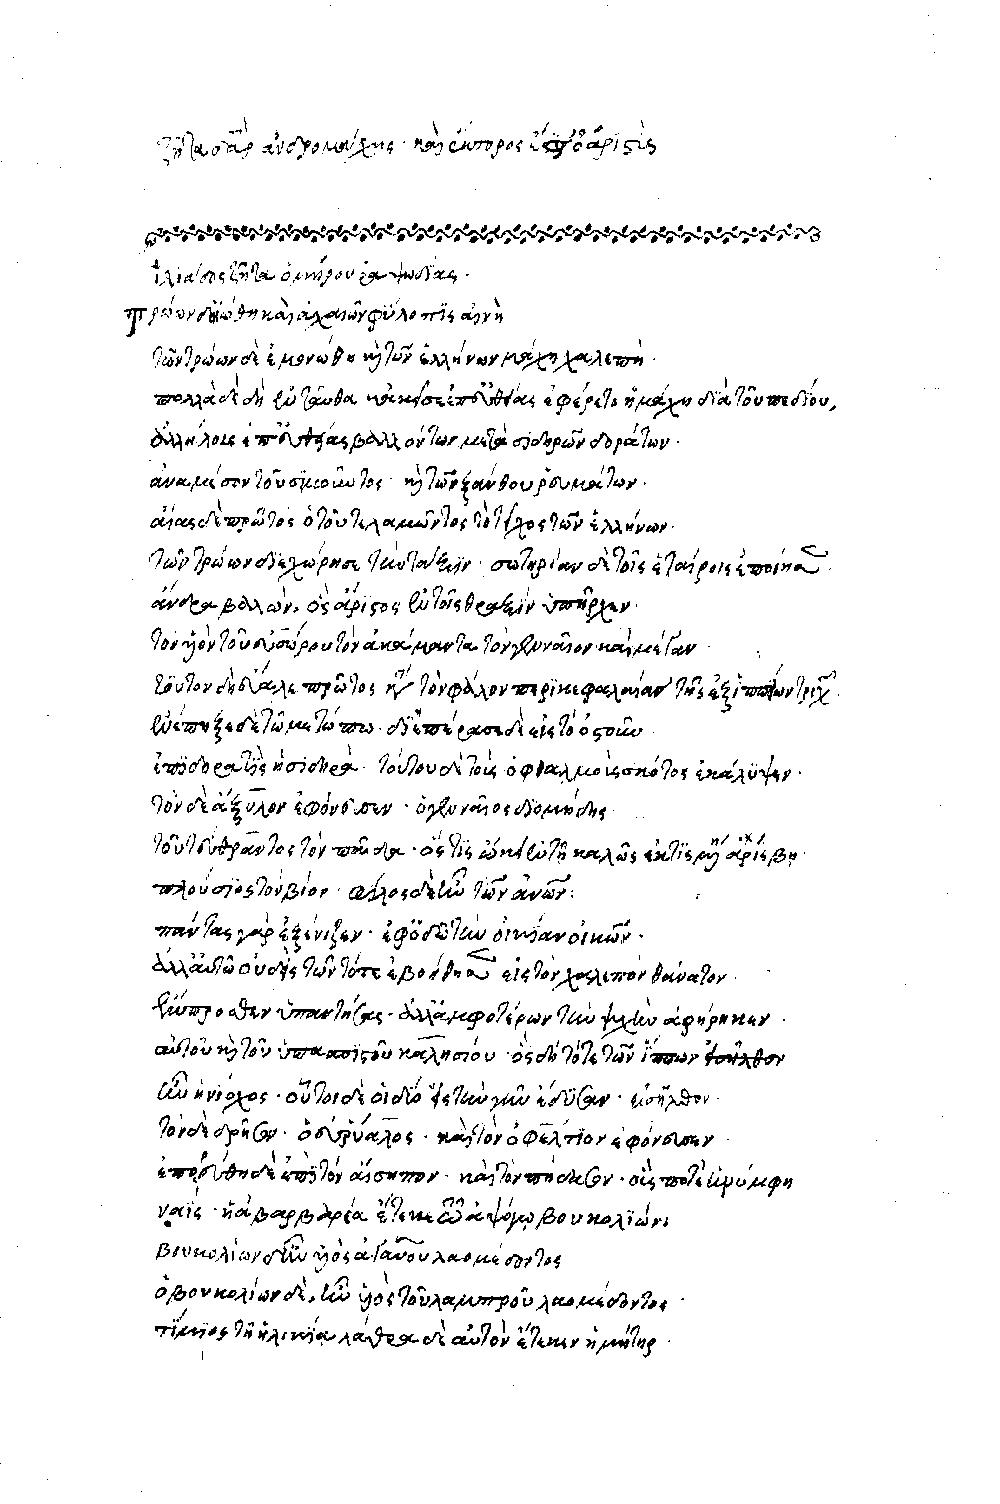 ζῆτα δ' ἄρ ἀνδρομάχης· καὶ ἕκτορος ἐστ' ὀαριστὺς
ἰλιάδος ζῆτα ὁμήρου ῥαψωδίας·
τρώων δ' οἰώθη καὶ ἀχαιῶν φύλοπις αἰνὴ
τῶν τρώων δὲ ἐμονώθη καὶ τῶν ἑλλήνων μάχη χαλεπὴ·
πολλὰ δὲ δὴ ἐνταῦθα κἀκεῖσε ἐπ' εὐθείας ἐφέρετο ἡ μάχη διὰ τοῦ πεδίου,
ἀλλήλοις ἐπ' εὐθείας βαλλόντων μετὰ σιδηρῶν δοράτων·
ἀναμέσον τοῦ σιμοῦντος· καὶ τῶν ξάνθου ῥευμάτων·
αἴας δὲ πρῶτος ὁ τοῦ τελαμῶντος τὸ τεῖχος τῶν ἑλλήνων·
τῶν τρώων διεχώρησε τὴν τάξιν· σωτηρίαν δὲ τοῖς ἑταίροις ἐποίησεν·
ἄνδρα βαλὼν, ὃς ἄριστος ἐν τοῖς θραξὶν ὑπῆρχεν·
τὸν υἱὸν τοῦ εὐσώρου τὸν ἀκάμαντα τὸν γενναῖον καὶ μέγαν·
τοῦτον δὴ ἔβαλε πρῶτος κατὰ τὸν φάλον περικεφαλαίας τῆς ἐξ ἱππείων τριχῶν·
ἐνέπηξε δὲ τῶ μετώπω· διεπέρασε δὲ εἰς τὸ ὀστοῦν
ἐπιδορατὶς ἡ σιδηρᾶ· τούτου δὲ τοὺς ὀφθαλμοὺς σκότος ἐκάλυψεν·
τὸν δὲ ἄξυλον ἐφόνευσεν· ὁ γενναῖος διομήδης·
τοῦ τεύθραντος τὸν παῖδα· ὅστις ὤκει ἐν τῆ καλῶς ἐκτισμένη ἀρίσβη·
πλούσιος τὸν βίον· φίλος δὲ ἦν τῶν ἀνθρώπων·
πάντας γὰρ ἐξένιζεν· ἐφ' ὁδῶ τὴν οἰκίαν οἰκῶν·
ἀλλ' αὐτῶ οὐδεὶς τῶν τότε ἐβοήθησεν εἰς τὸν χαλεπὸν θάνατον·
ἔμπροσθεν ὑπαντήσας· ἀλλ' ἀμφοτέρων τὴν ψυχὴν ἀφήρηκεν·
αὐτοῦ καὶ τοῦ ὑπασπιστοῦ καλησίου· ὃς δὴ τότε τῶν ἵππων
ἦν ἡνίοχος· οὗτοι δὲ οἱ δύο τὴν γῆν ἔδυσαν· εἰσῆλθον·
τὸν δὲ δρῆσον· ὁ εὐρύαλος· καὶ τὸν ὀφέλτιον ἐφόνευσεν·
ἐπορεύθη δὲ ἐπὶ τὸν αἴσηπον· καὶ τὸν πήδασον· οὕς ποτε νύμφη
ναῒς· ἡ ἀβαρβαρέα ἔτεκε τῶ ἀψόγω βουκολίωνι
βουκολίων δ' ἦν υἱὸς ἀγαυοῦ λαομέδοντος
ὁ βουκολίων δὲ, ἦν υἱὸς τοῦ λαμπροῦ λαομέδοντος·
τίμιος τῆ ἡλικία λάθρα δὲ αὐτὸν ἔτεκεν ἡ μήτηρ·